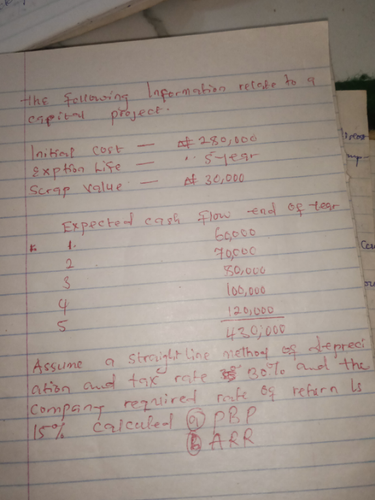 The following Information relate to a
capital project.
Initial cost — ₦ 280,000
Exption Life — 5-year
Scrap Value — ₦ 30,000
Expected cash flow end of year
1. 60,000
2 70,000
3 80,000
4 100,000
5 120,000
430,000
Assume a straight line method of depreci
ation and tax rate 30% and the
company required rate of return is
15% calculated (a) PBP
(b) ARR